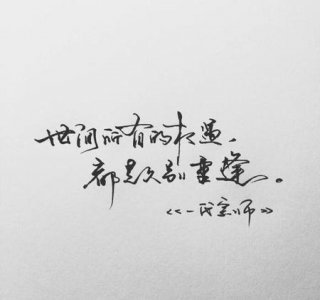 世间所有的相遇,
都是久别重逢。
<<一代宗师>>